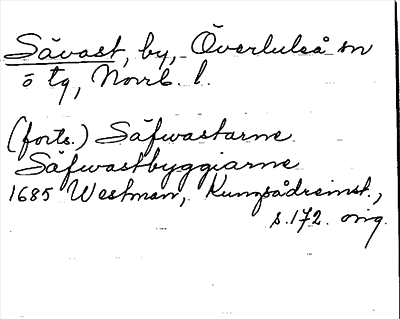 Sävast, by, Överluleå sn
o tg, Norrb. l.
(forts.) Säfwastarne
Säfwastbyggiarne
1685 Westman, Kungsådreinst.,
s. 172. orig.